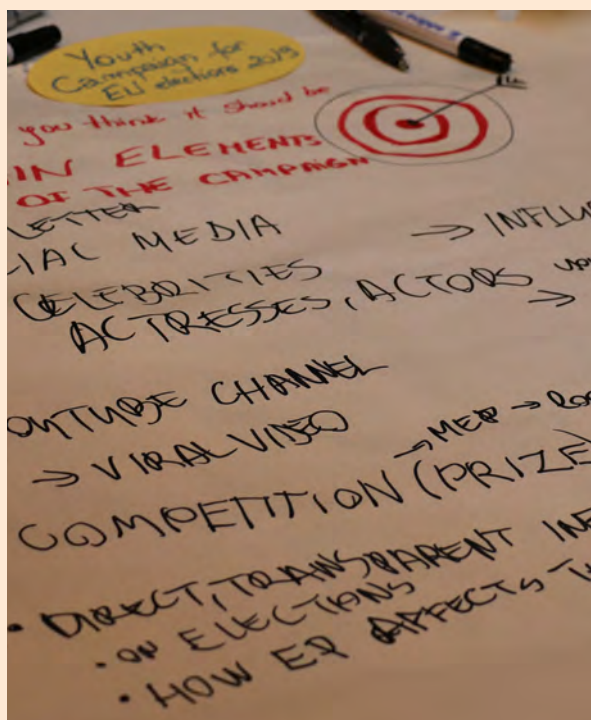 Youth
Campaign for
EU elections 2019
you think it should be
IN ELEMENTS
OF THE CAMPAIGN
LETTER
CIAC MEDIA → INFLU
CELEBRITIES
ACTRESSES, ACTORS
→
OUTUBE CHANNEL
→ VIRAL VIDEO
→ MEP →
COMPETITION (PRIZE)
• DIRECT, TRANSPARENT IN
• ON ELECTIONS
• HOW EP AFFECTS